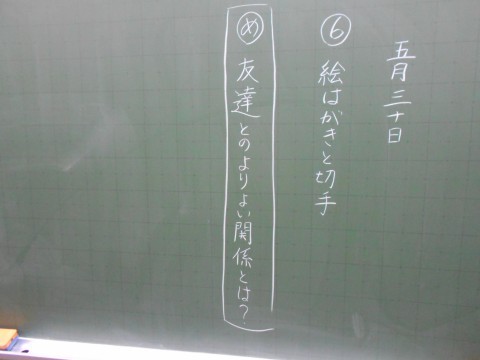 五月三十日
⑥ 絵はがきと切手
㋱ 友達とのよりよい関係とは？